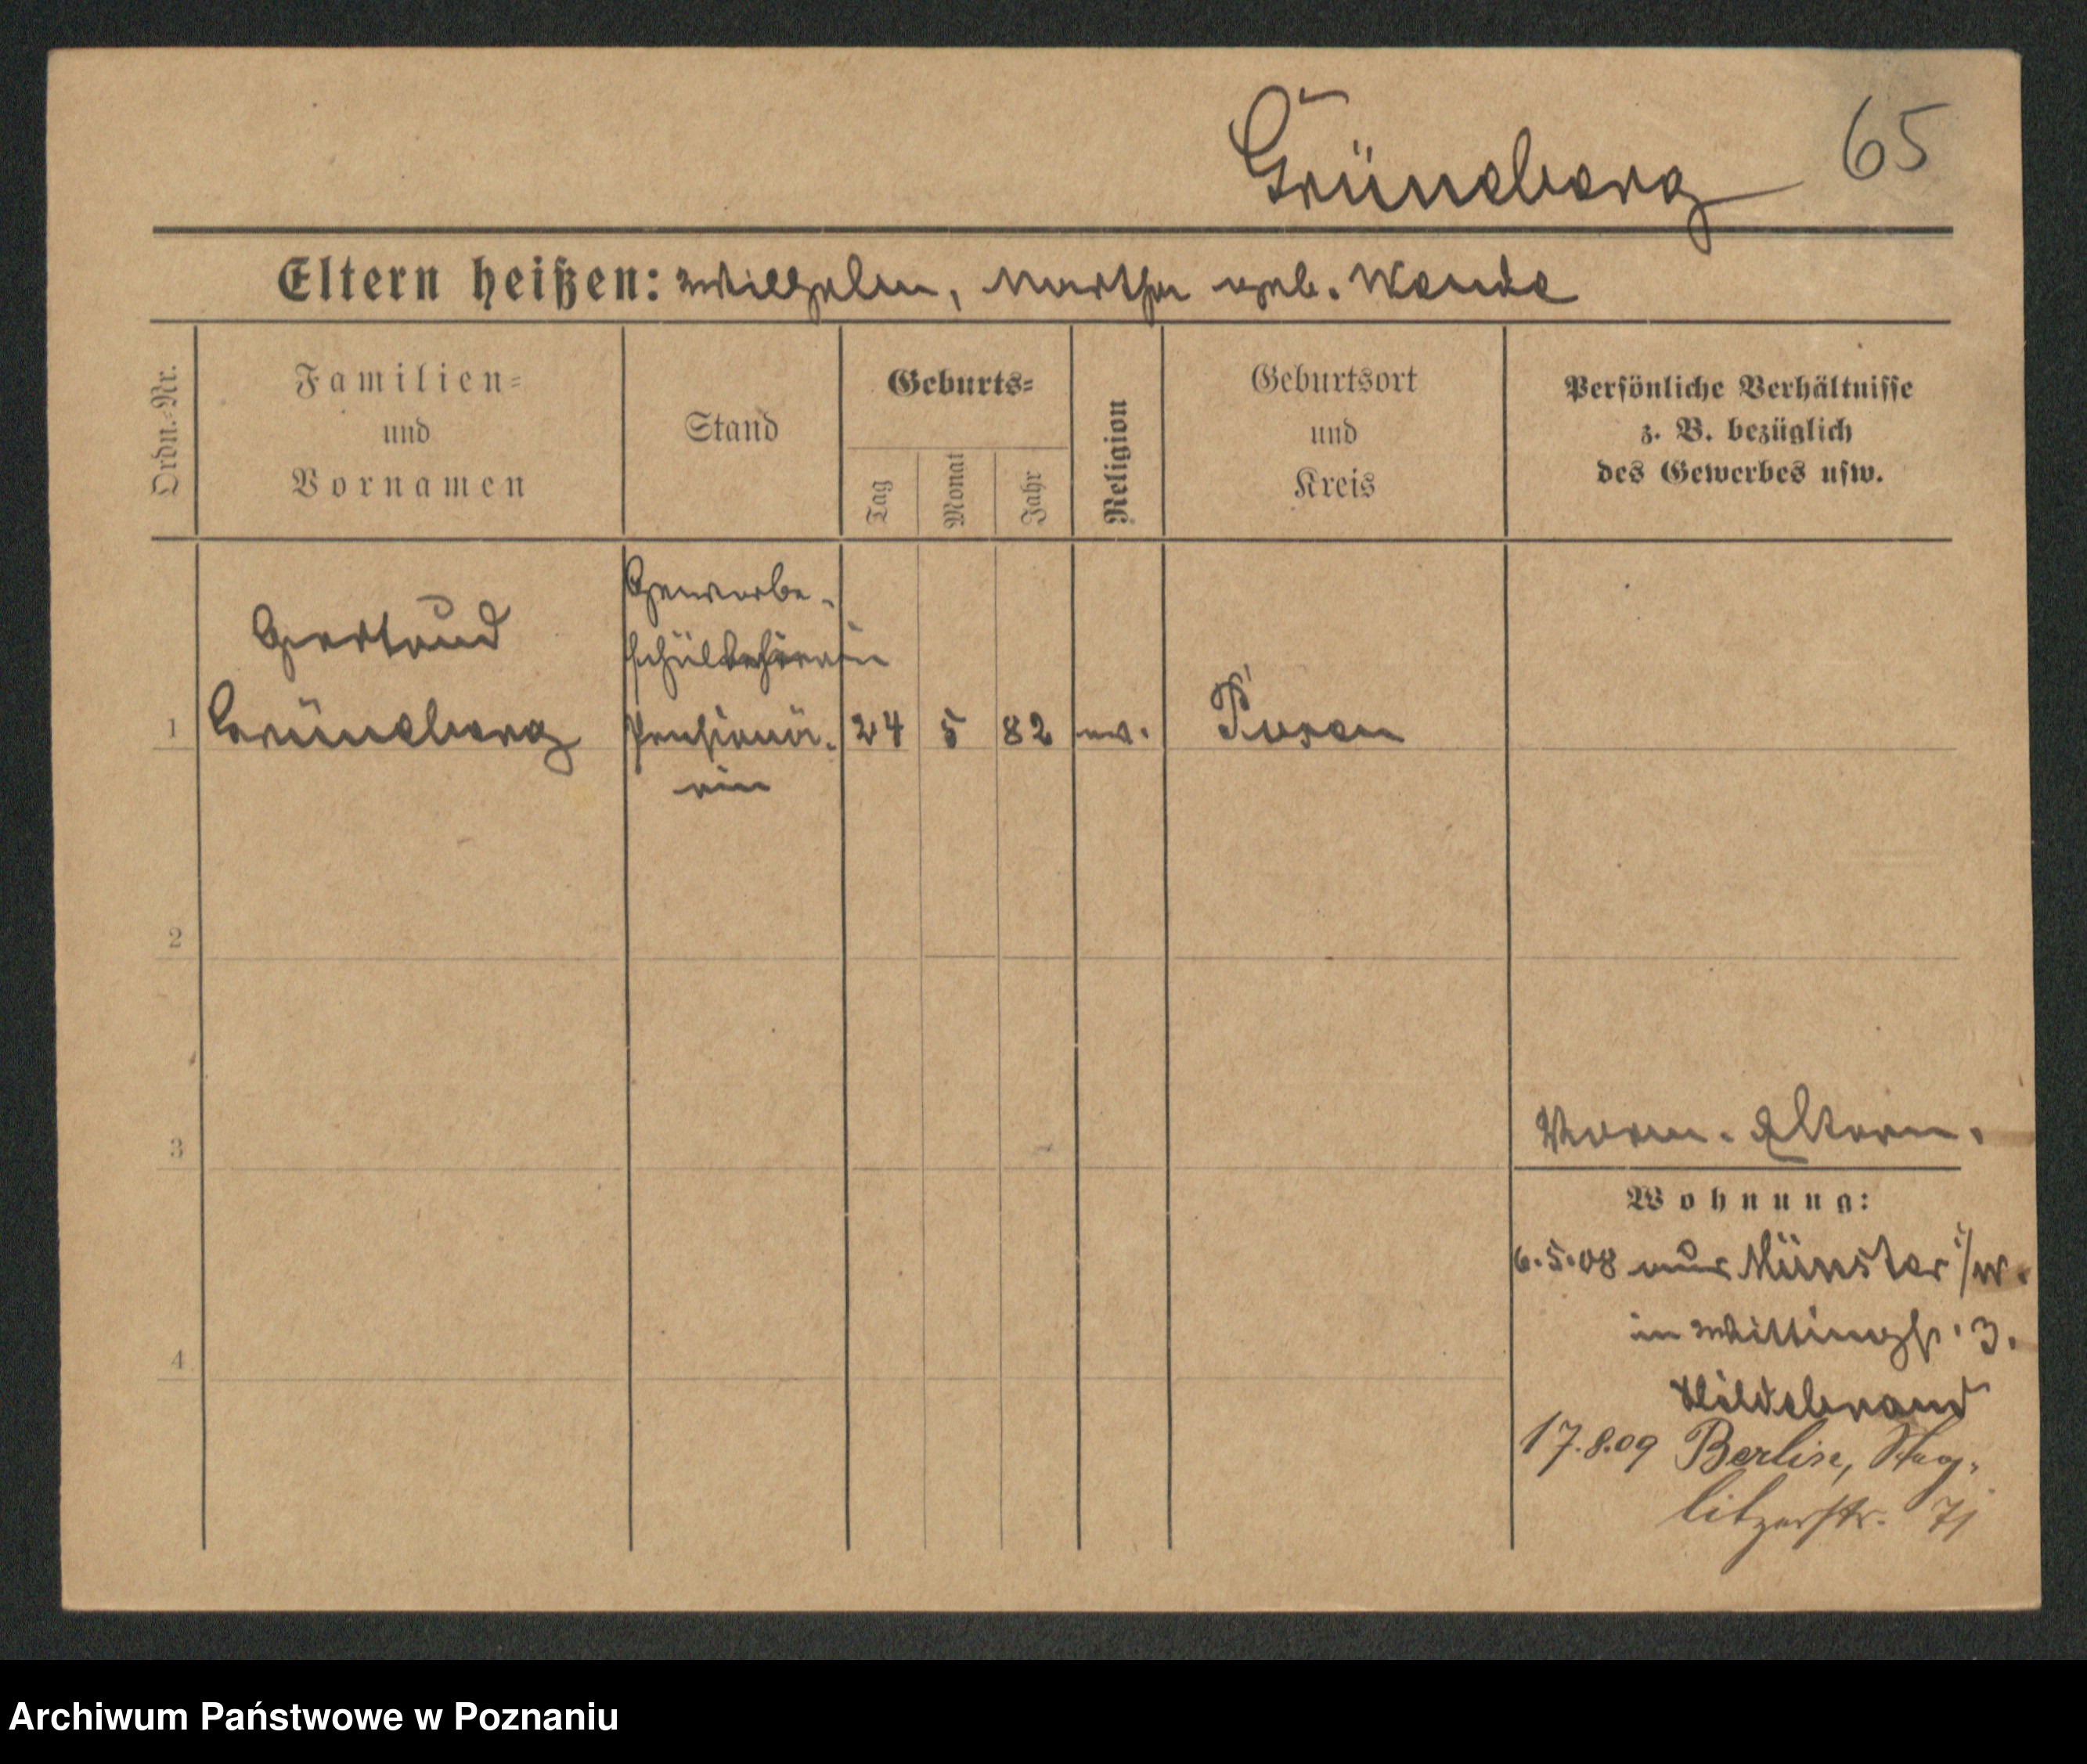 Grüneberg 65
Eltern heißen: Wilhelm, Martha geb. Wende
Ordn.-Nr.
Familien-
und
Vornamen
Stand
Geburts-
Tag
Monat
Jahr
Religion
Geburtsort
und
Kreis
Persönliche Verhältnisse
z. B. bezüglich
des Gewerbes usw.
Gewerbe-
Gertrud
schullehrerin
1 Grüneberg Pensionä- 24 5 82 ev. Posen
rin
2
3
Vorm. Eltern.
Wohnung:
6.5.08 aus Münster i/W.
4
in Wittingstr. 3.
Hildebrand
17.8.09 Berlin, Steg-
litzerstr. 71
Archiwum Państwowe w Poznaniu